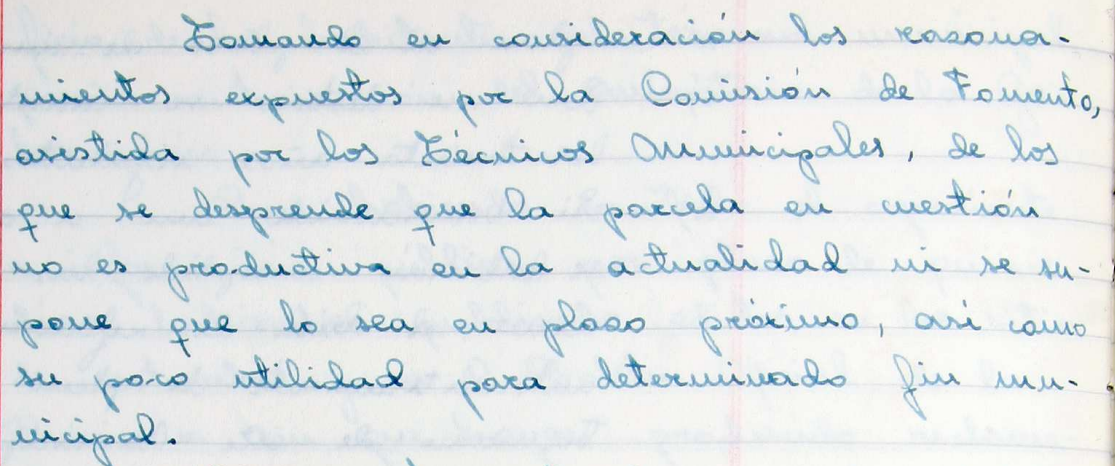 Tomando en consideración los razona-
mientos expuestos por la Comisión de Fomento,
asistida por los Técnicos Municipales, de los
que se desprende que la parcela en cuestión
no es productiva en la actualidad ni se su-
pone que lo sea en plazo próximo, así como
su poco utilidad para determinado fin mu-
nicipal.